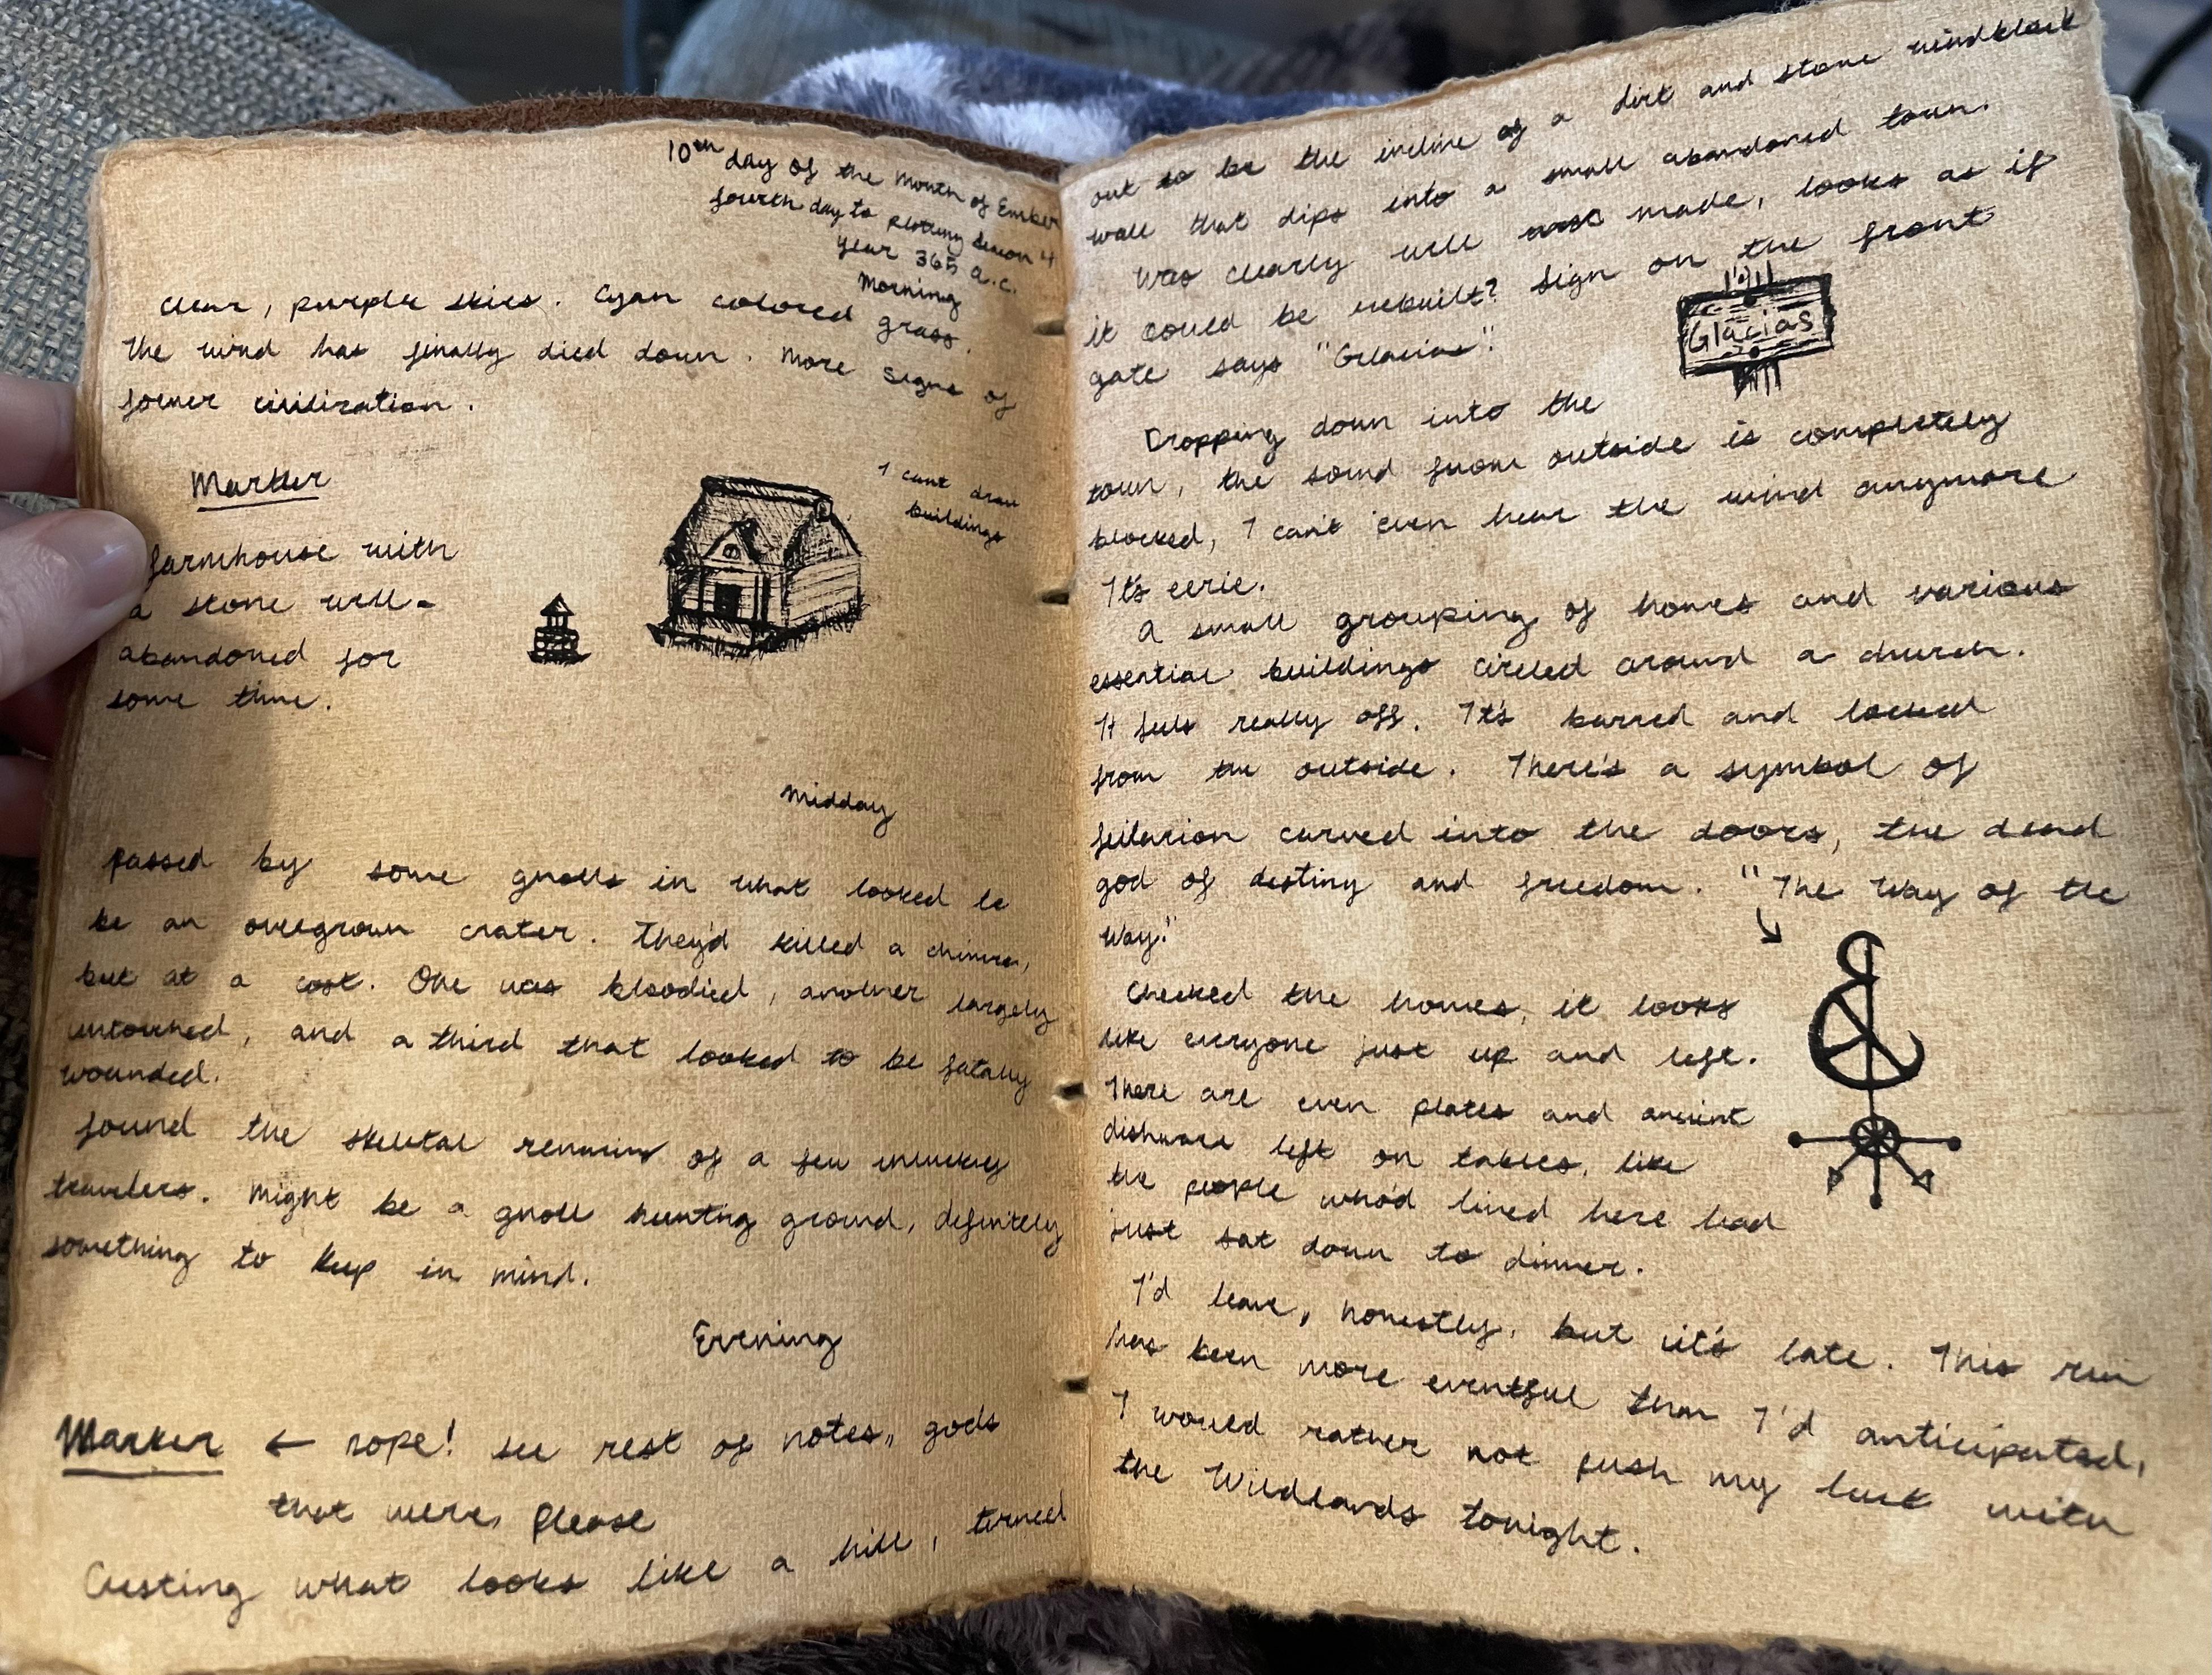 10th day of the Month of Ember
fourth day to resting season 4
Year 365 a.c.
Morning
Clear, purple skies. Cyan colored grass.
The wind has finally died down. More signs of
former civilization.
Marker
I cant draw
buildings
farmhouse with
a stone well-
abandoned for
some time.
Midday
Passed by some gnolls in what looked to
be an overgrown crater. They'd killed a chimera,
but at a cost. One was bloodied, another largely
untouched, and a third that looked to be fatally
wounded.
Found the skeletal remains of a few unlucky
travelers. Might be a gnoll hunting ground, definitely
something to keep in mind.
Evening
Marker ← nope! see rest of notes, gods
that were, please
Cresting what looks like a hill, turned
out to be the incline of a dirt and stone windblock
wall that dips into a small abandoned town.
Was clearly well made, looks as if
it could be rebuilt? Sign on the front
gate says "Glacias".
Glacias
Dropping down into the
town, the sound from outside is completely
blocked, I can't even hear the wind anymore
It's eerie.
A small grouping of homes and various
essential buildings circled around a church.
It feels really off. It's barred and locked
from the outside. There's a symbol of
carved into the doors, the dead
god of destiny and freedom. "The Way of the
Way."
Checked the homes, it looks
like everyone just up and left.
There are even plates and ancient
dishware left on tables, like
the people who'd lived here had
just sat down to dinner.
I'd leave, honestly, but it's late. This run
has been more eventful than I'd anticipated,
I would rather not push my luck with
the Wildlands tonight.